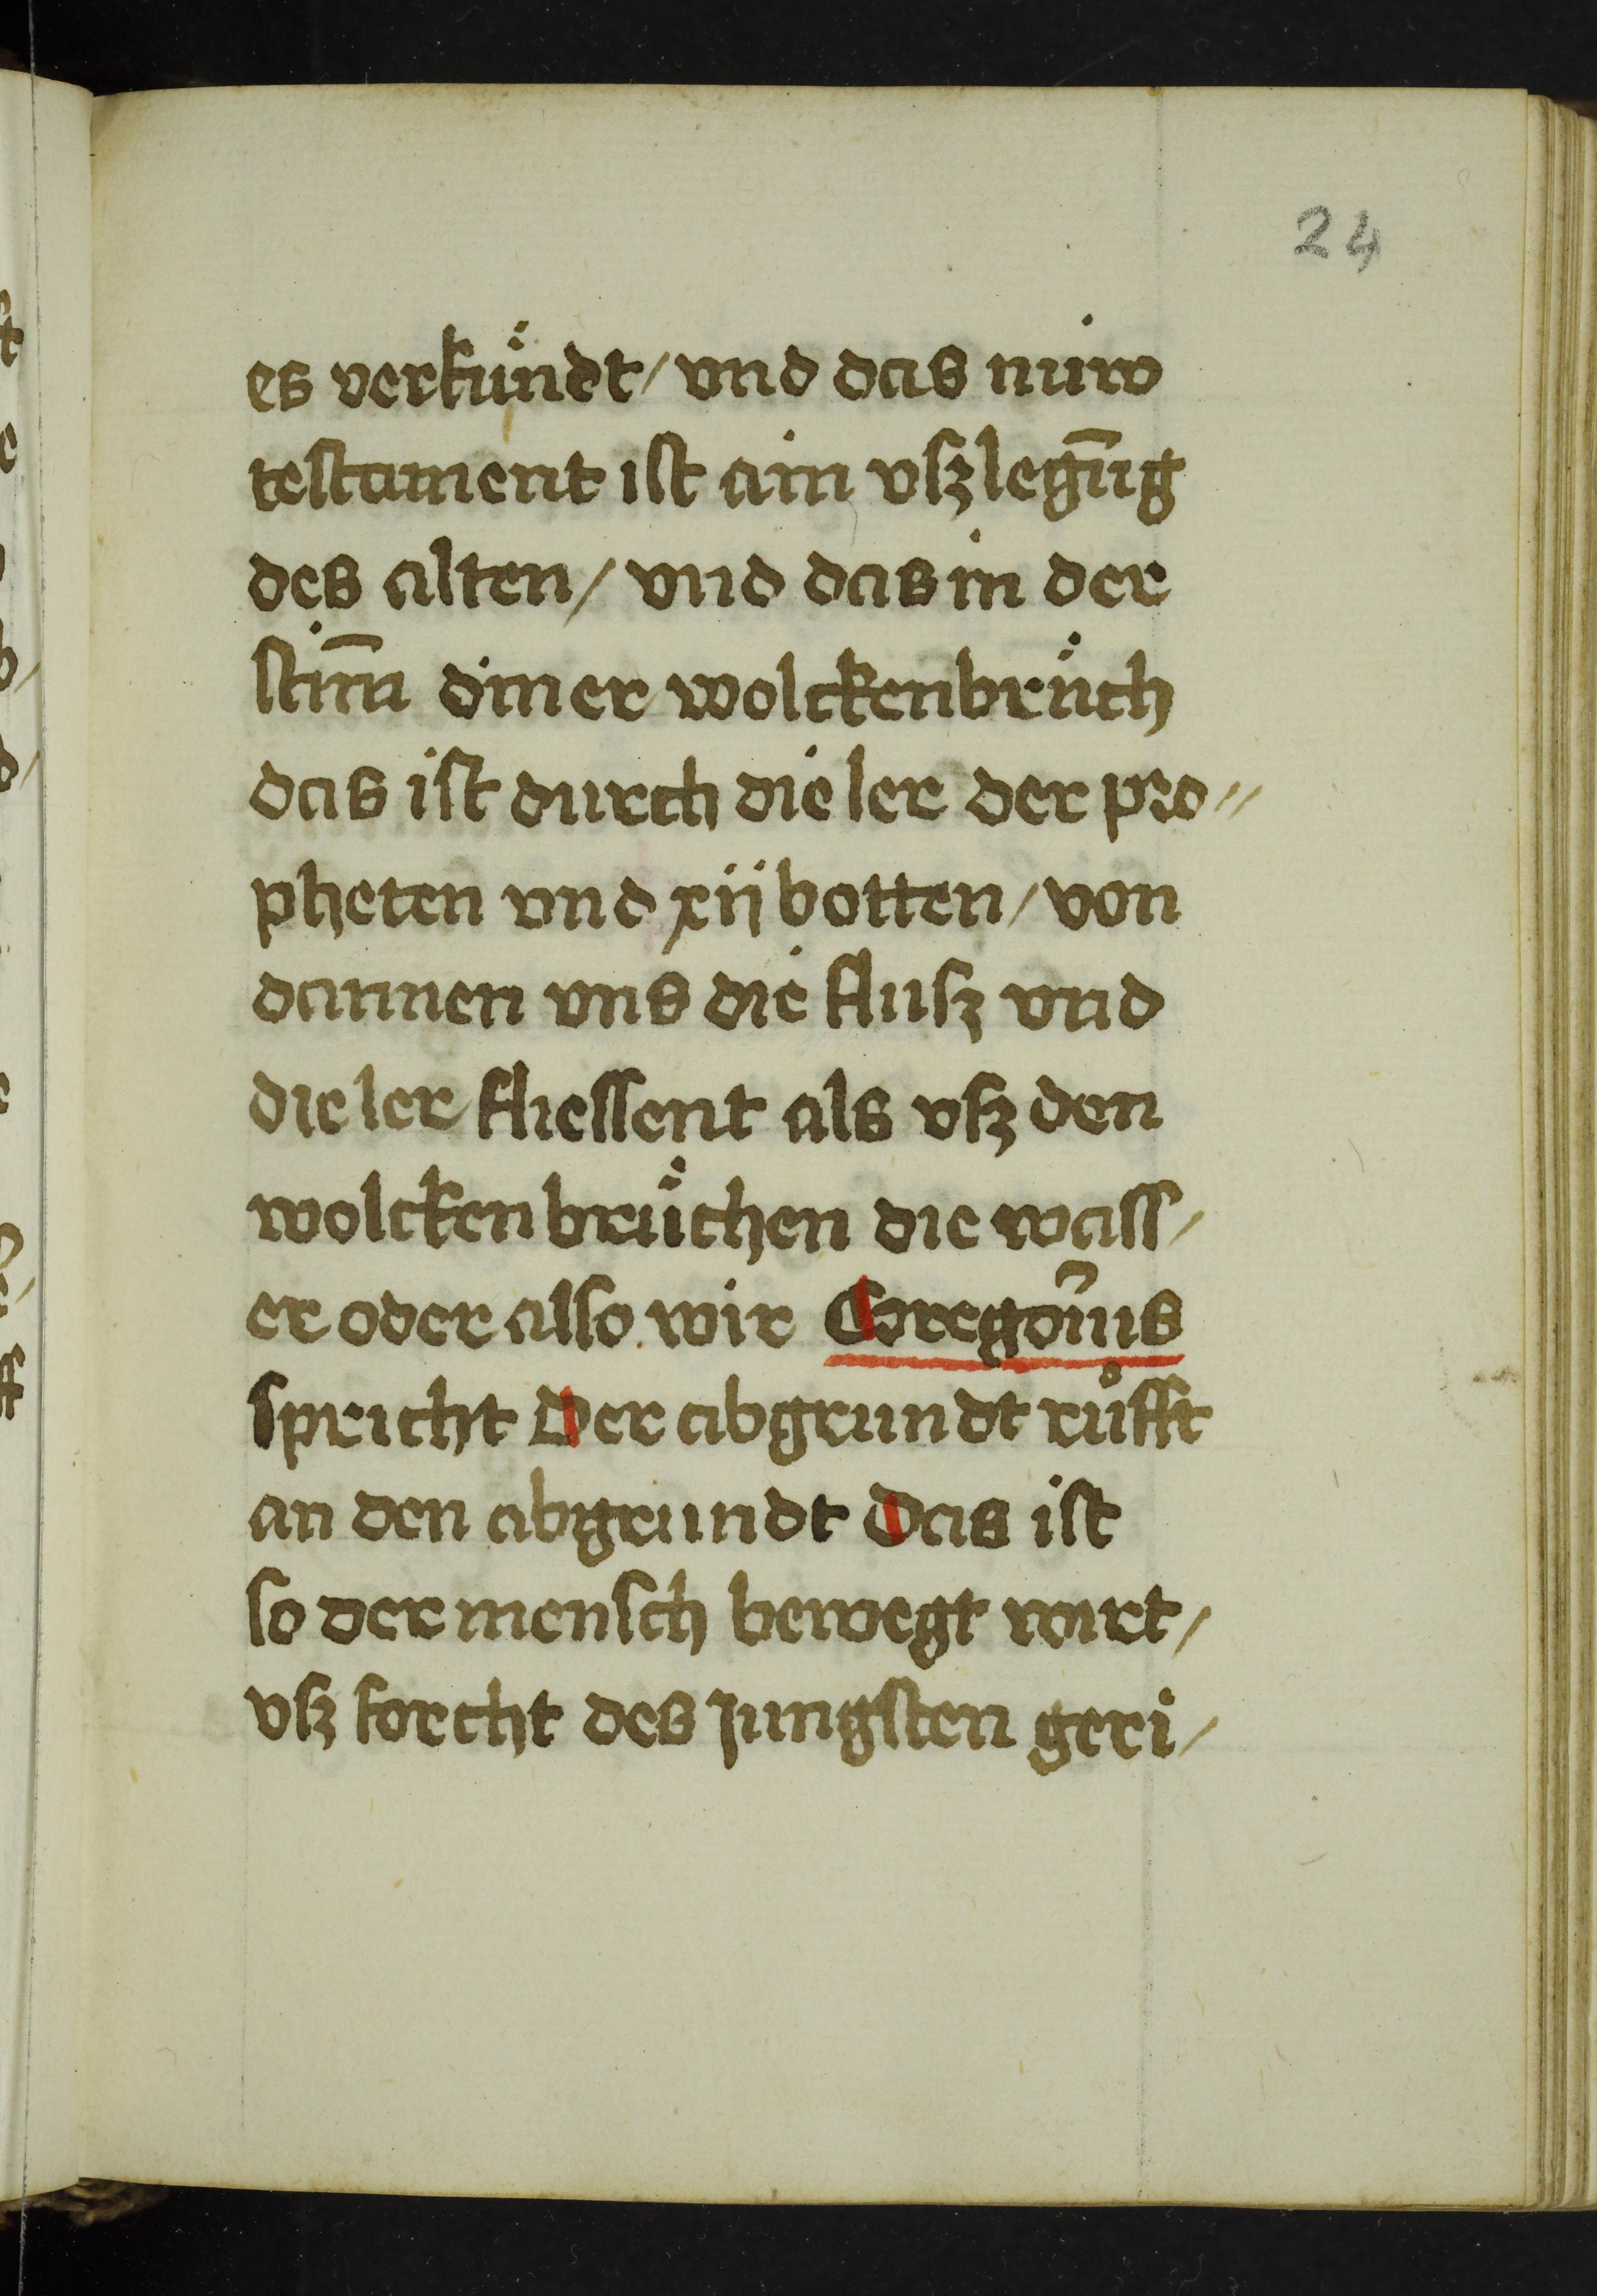 24
es verkündt / vnd das nüw
testament ist ain vſzlegu̅g
des alten / vnd das in der
ſtim̅ diner wolckenbrüch
das iſt durch die ler der pro⸗
pheten vnd xij botten / von
dannen vns die fluſz vnd
die ler flieſſent als vſz den
wolckenbrüchen die waſſ /
er oder alſo wir Gregoꝛi̅us
ſpricht Der abgrundt růfft
an den abgrundt Das iſt
ſo der menſch bewegt wirt /
vſz forcht des Jungſten geri /